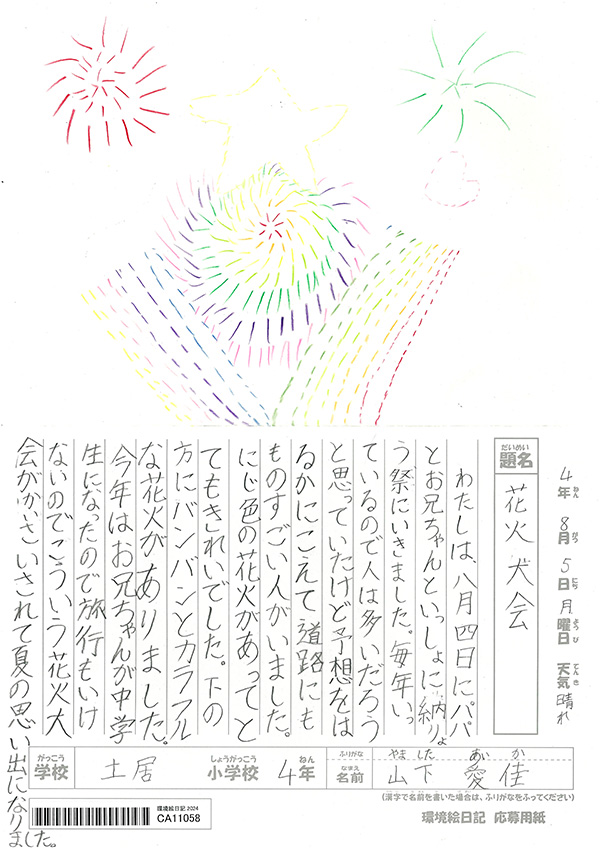 4年 8月 5日 月曜日 天気 晴れ
ねん がつ にち ようび てんき
だいめい
題名 花火犬会
わたしは、八月四日にパパ
とお兄ちゃんといっしょに納りょ
う祭にいきました。毎年いっ
ているので人は多いだろう
と思っていたけど予想をは
るかにこえて道路にも
ものすごい人がいました。
にじ色の花火があってと
てもきれいでした。下の
方にバンバンとカラフル
な花火がありました。
今年はお兄ちゃんが中学
生になったので旅行もいけ
ないのでこういう花火大
会がかいさいされて夏の思い出になりました。
がっこう しょうがっこう ねん ふりがな やま した あい か
学校 土居 小学校 4年 なまえ 名前 山下 愛佳
(漢字で名前を書いた場合は、ふりがなをふってください)
環境絵日記 応募用紙
環境絵日記 2024
CA11058